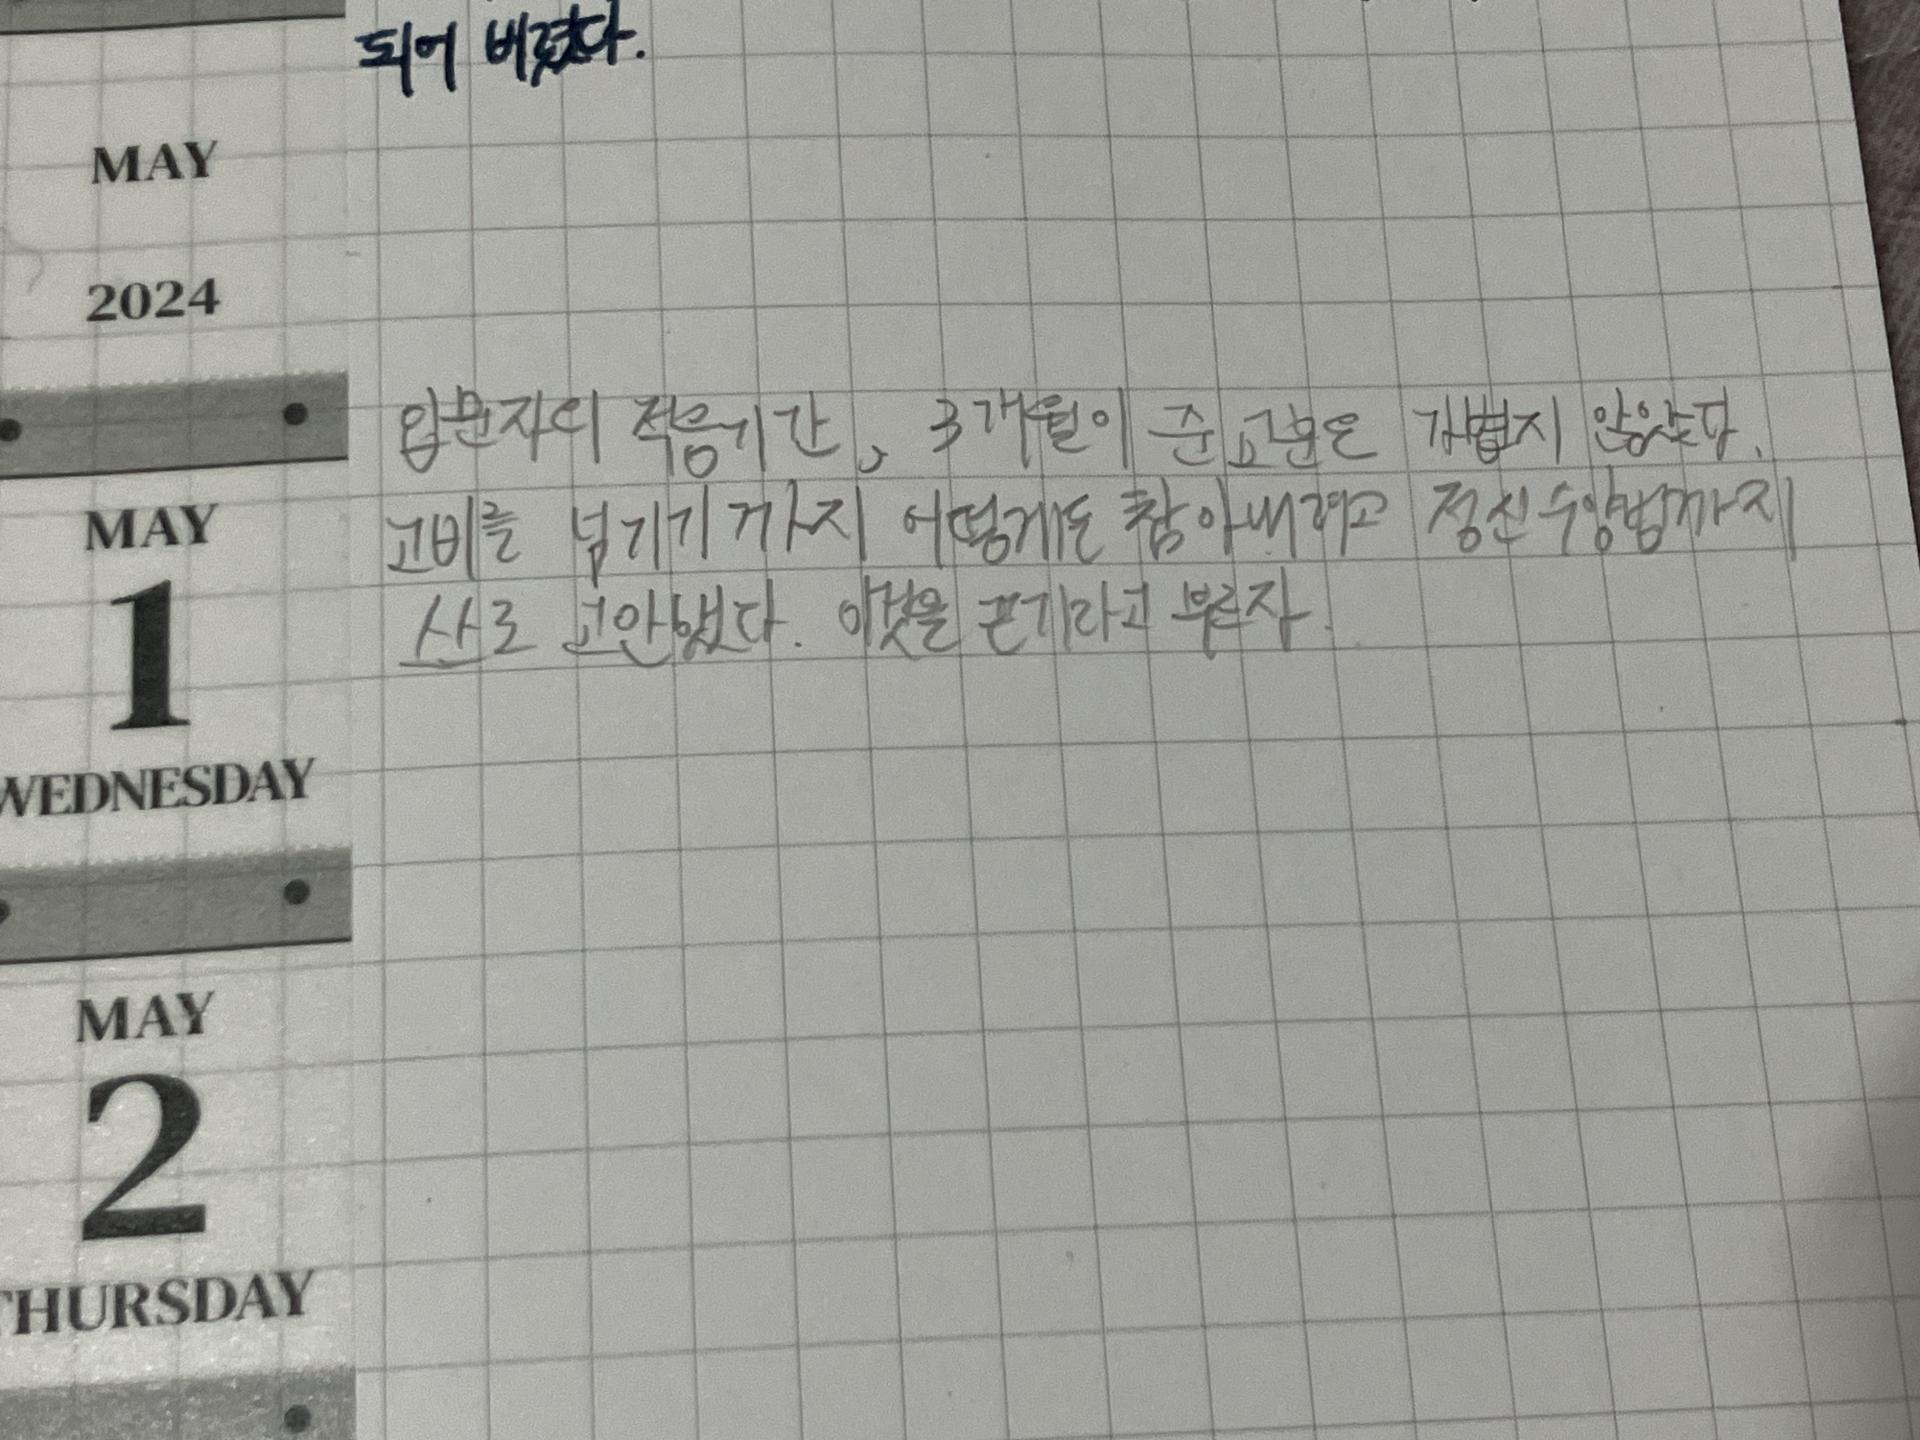 되어 버렸다.
MAY
2024
입문자의 적응기간, 3개월이 준 교훈은 가볍지 않았다.
고비를 넘기기 까지 어떻게든 참아내려고 정신수양법까지
스스로 고안했다. 이것을 끈기라고 부르자.
MAY
1
WEDNESDAY
MAY
2
THURSDAY